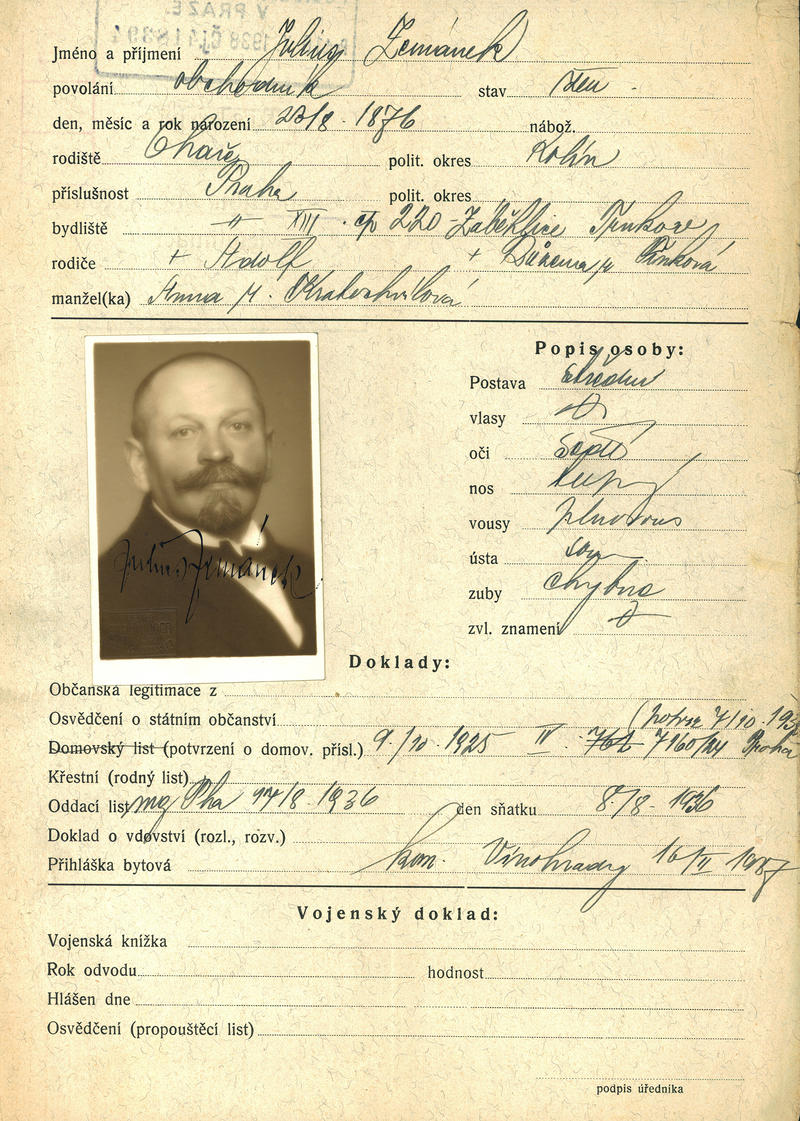 V PRAZE.
1938 Čj.
Jméno a příjmení Julius Zemánek
povolání obchodník stav žen
den, měsíc a rok narození 23/8 . 1876 nábož.
rodiště polit. okres Kolín
příslušnost Praha polit. okres
bydliště –"– XIII . čp 220 - Záběhlice
rodiče + Adolf +
manžel(ka) Anna r. Kratochvílová
Popis osoby:
Postava střední
vlasy
oči šedé
nos tupý
vousy plnovous
ústa
zuby chybné
zvl. znamení
Julius Zemánek
Doklady:
Občanská legitimace z
Osvědčení o státním občanství
(potvrz 7/10 . 193
Domovský list (potvrzení o domov. přísl.) 9./10 . 1925 IV . 762 7160/24 Praha
Křestní (rodný list)
Oddací list mag Pha 17/8 . 1936 den sňatku 8/8 - 1936
Doklad o vdovství (rozl., rozv.)
Přihláška bytová kom. Vinohrady 16/II 1937
Vojenský doklad:
Vojenská knížka
Rok odvodu hodnost
Hlášen dne
Osvědčení (propouštěcí list)
podpis úředníka